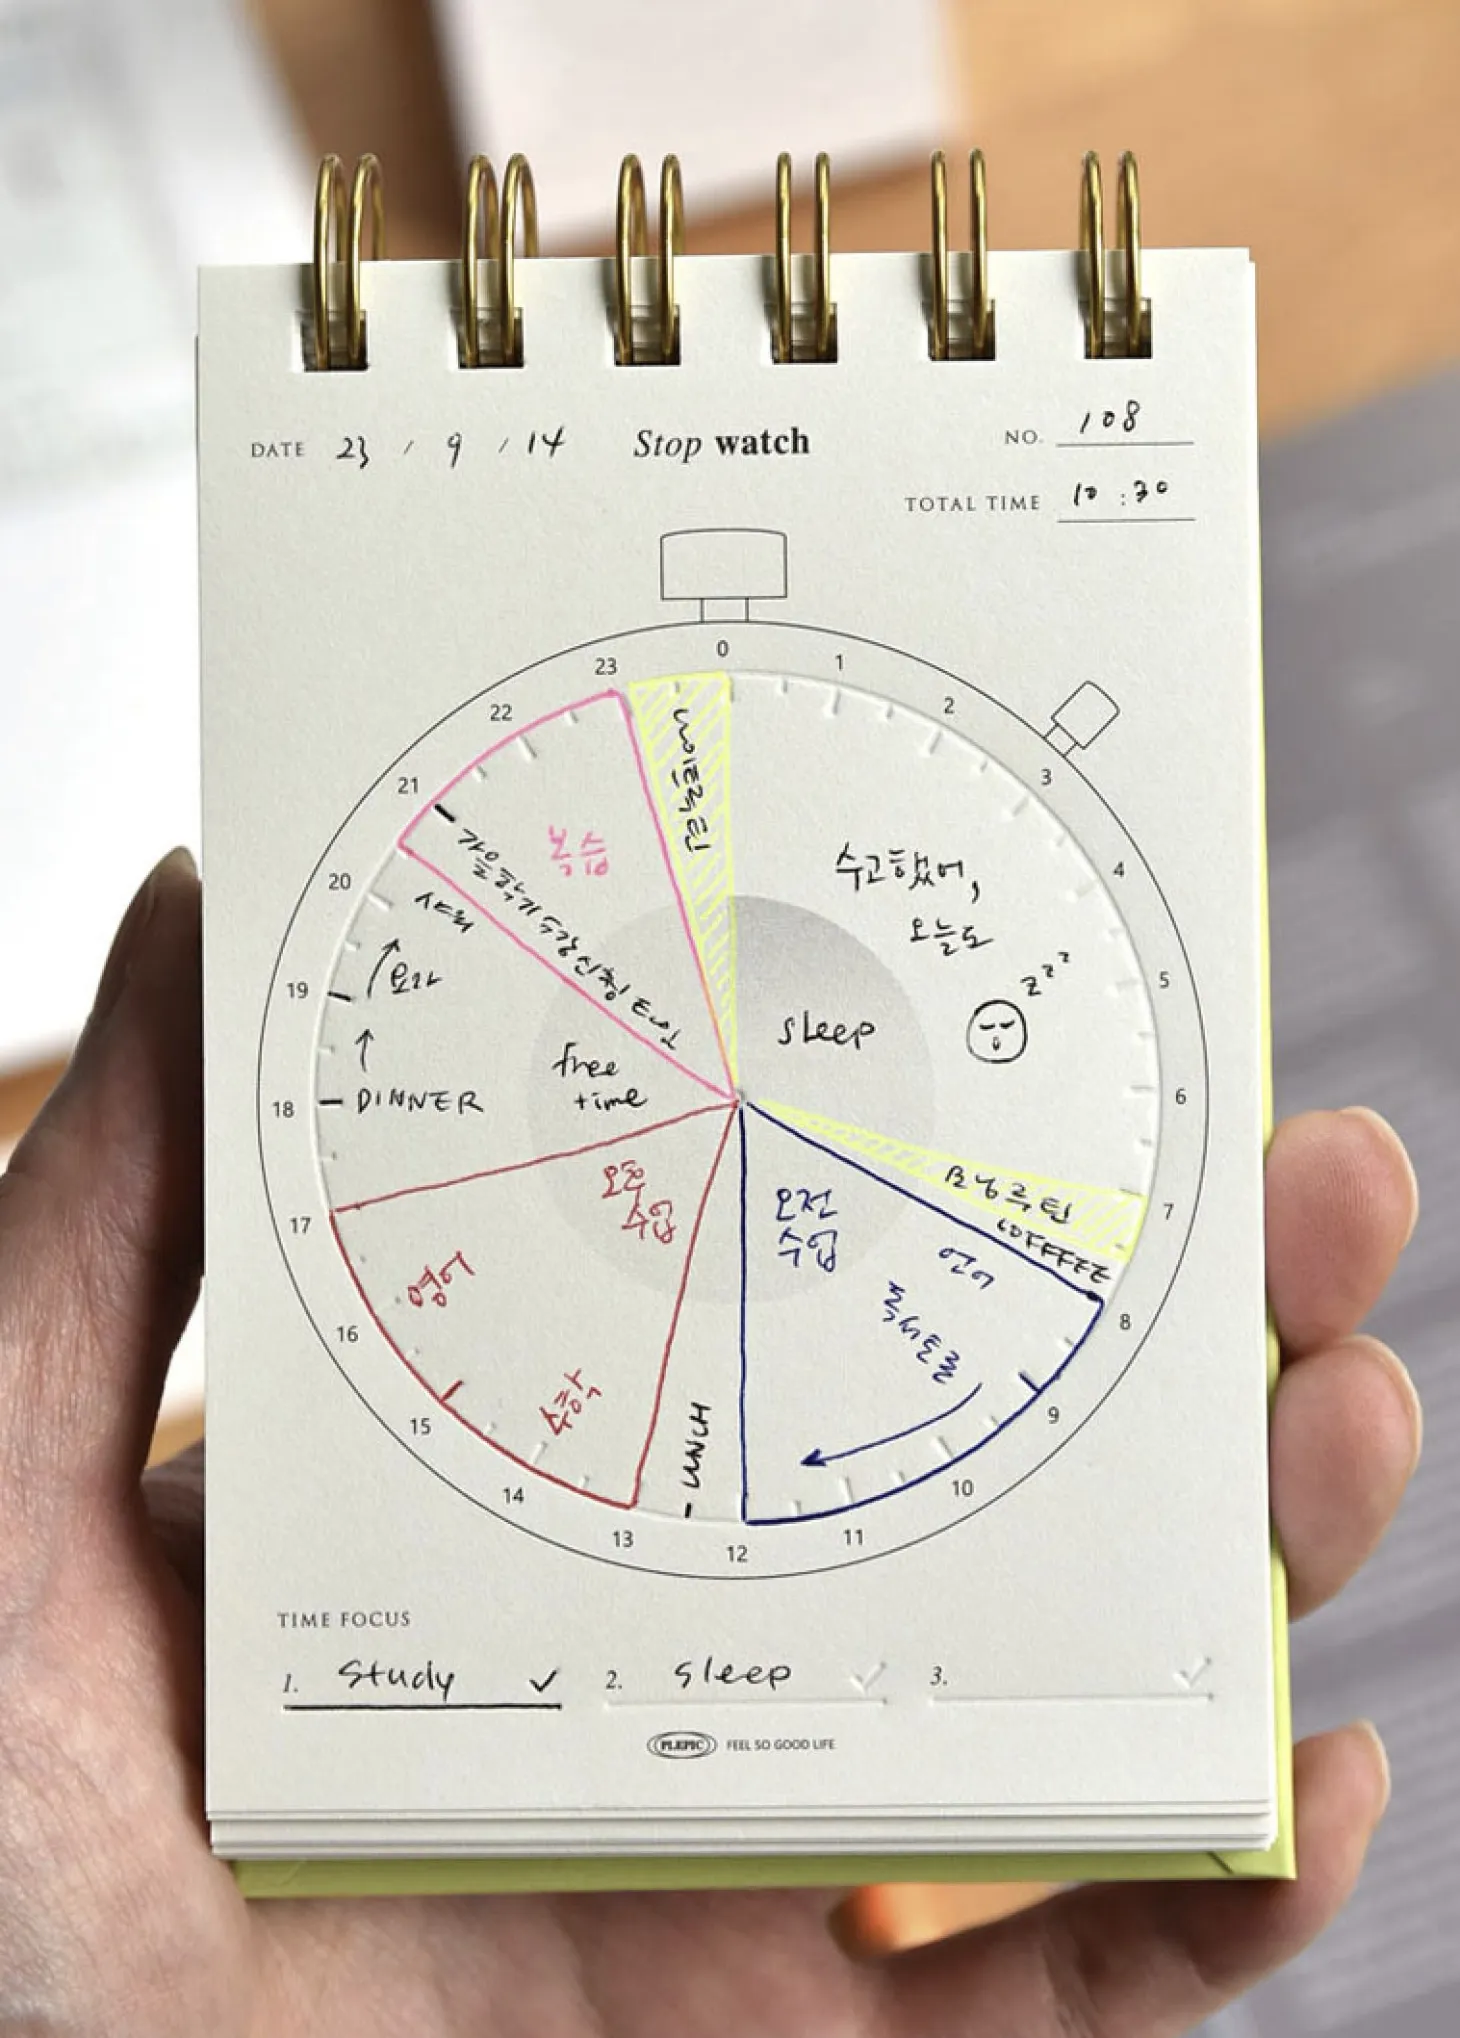 DATE 23 / 9 / 14
Stop watch
NO. 108
TOTAL TIME 10:30
0
1
2
3
4
5
6
7
8
9
10
11
12
13
14
15
16
17
18
19
20
21
22
23
나이트루틴
수고했어,
오늘도
zzz
sleep
모닝루틴
COFFEE
오전
수업
언어
LUNCH
오후
수업
수학
영어
free
time
DINNER
요가
샤워
복습
가을학기 수강신청
TIME FOCUS
1. Study
2. Sleep
3.
PLEPIC FEEL SO GOOD LIFE